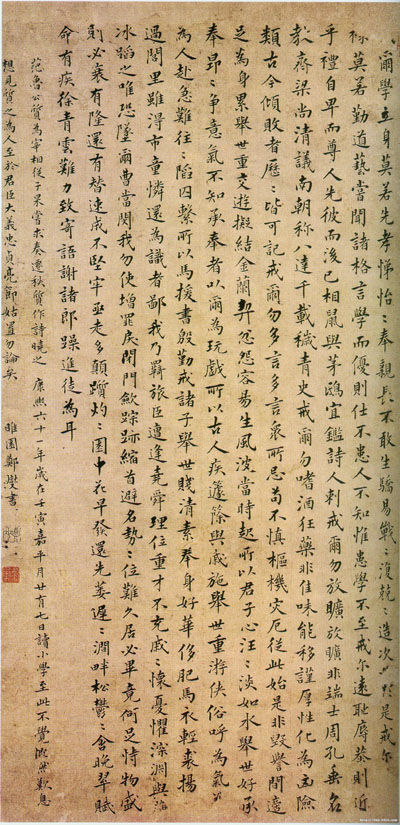 〻爾學立身莫若先孝悌怡〻奉親長不敢生驕易戰〻復兢〻造次必於是戒爾
祿莫若勤道藝嘗聞諸格言學而優則仕不患人不知惟患學不至戒尔遠耻辱恭則近
乎禮自卑而尊人先彼而後己相鼠與茅鴟宜鑑詩人刺戒爾勿放曠放曠非端士周孔垂名
教齊梁尚清議南朝称八達千載穢青史戒爾勿嗜酒狂藥非佳味能移謹厚性化為凶險
類古今傾敗者歷〻皆可記戒爾勿多言多言衆所忌苟不慎樞機灾厄從此始是非毀譽間適
足為身累舉世重交遊擬結金蘭契忿怨容易生風波當時起所以君子心汪〻淡如水舉世好承
奉昂〻争意氣不知承奉者以爾為玩戲所以古人疾籧篨與戚施舉世重游俠俗呼為氣義
為人赴急難往〻陷囚繫所以馬援書殷勤戒諸子舉世賤清素奉身好華侈肥馬衣輕裘揚〻
過閭里雖得市童憐還為識者鄙我乃羈旅臣遭逢堯舜理位重才不充戚〻懷憂懼深淵與薄
冰蹈之唯恐墜爾曹當閔我勿使增罪戾閉門歛踪跡縮首避名勢〻位難久居必畢竟何足恃物盛
則必衰有隆還有替速成不堅牢亟走多顛躓灼〻園中花早發還先萎遲〻澗畔松鬱〻含晚翠賦
命有疾徐青雲難力致寄語謝諸郎躁進徒為耳
范魯公質為宰相從子杲嘗求奏遷秩質作詩曉之 康熙六十一年歲在壬寅嘉平月廿有七日讀小學至此不覺慨然歎息
想見質之為人至於君臣大義忠貞亮節姑置勿論矣 雎園鄭燮書